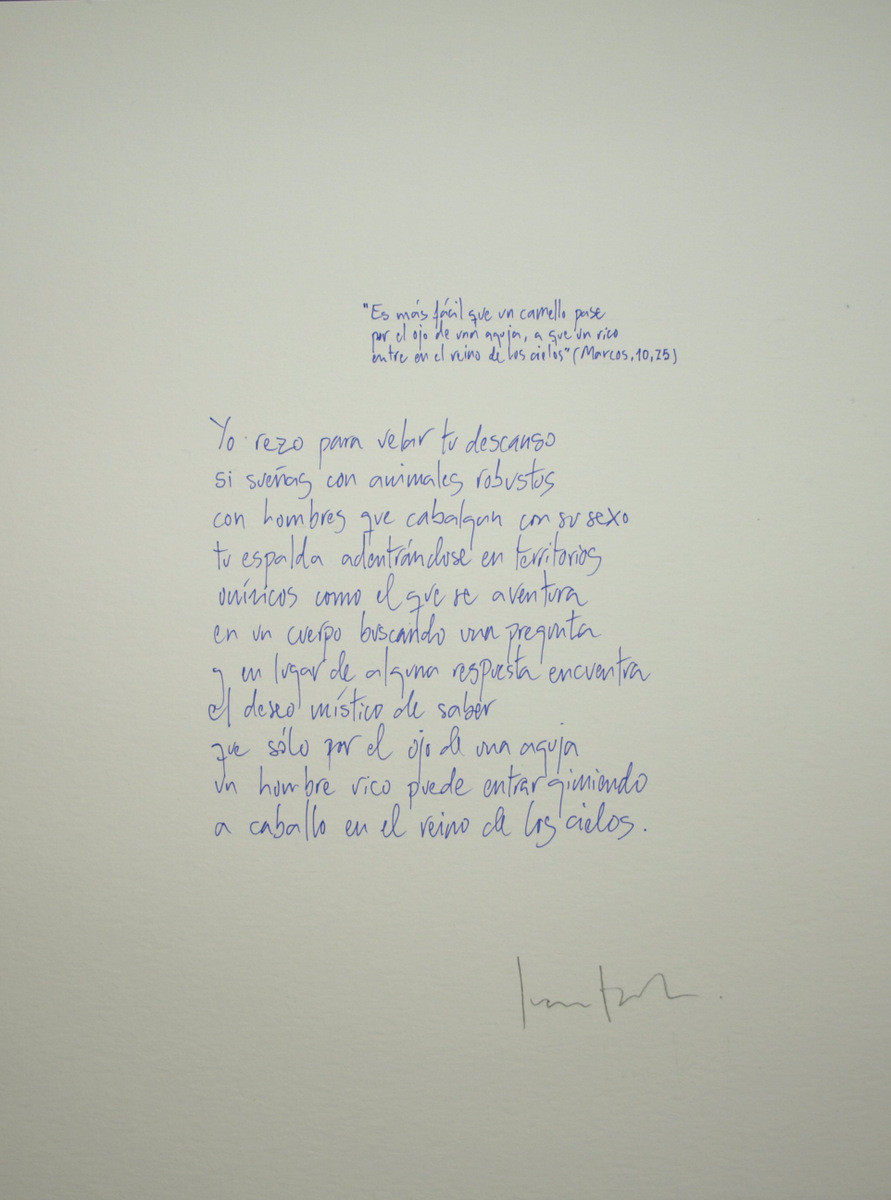 "Es más fácil que un camello pase
por el ojo de una aguja, a que un rico
entre en el reino de los cielos" (Marcos, 10, 25)
Yo rezo para velar tu descanso
si sueñas con animales robustos
con hombres que cabalgan con su sexo
tu espalda adentrándose en territorios
oníricos como el que se aventura
en un cuerpo buscando una pregunta
y en lugar de alguna respuesta encuentra
el deseo místico de saber
que sólo por el ojo de una aguja
un hombre rico puede entrar gimiendo
a caballo en el reino de los cielos.